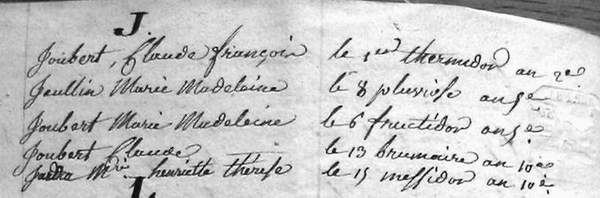 J.
Joubert, Claude françois le 1er thermidor an 2e
Jaullin Marie Madelaine le 8 pluviose an 5e
Joubert Marie Madeleine le 6 fructidor an 5e
Joubert Claude le 13 brumaire an 10e
Mrie henriette thérese le 15 messidor an 10e
L